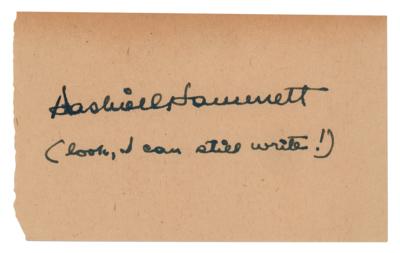 Dashiell Hammett
(look, I can still write!)